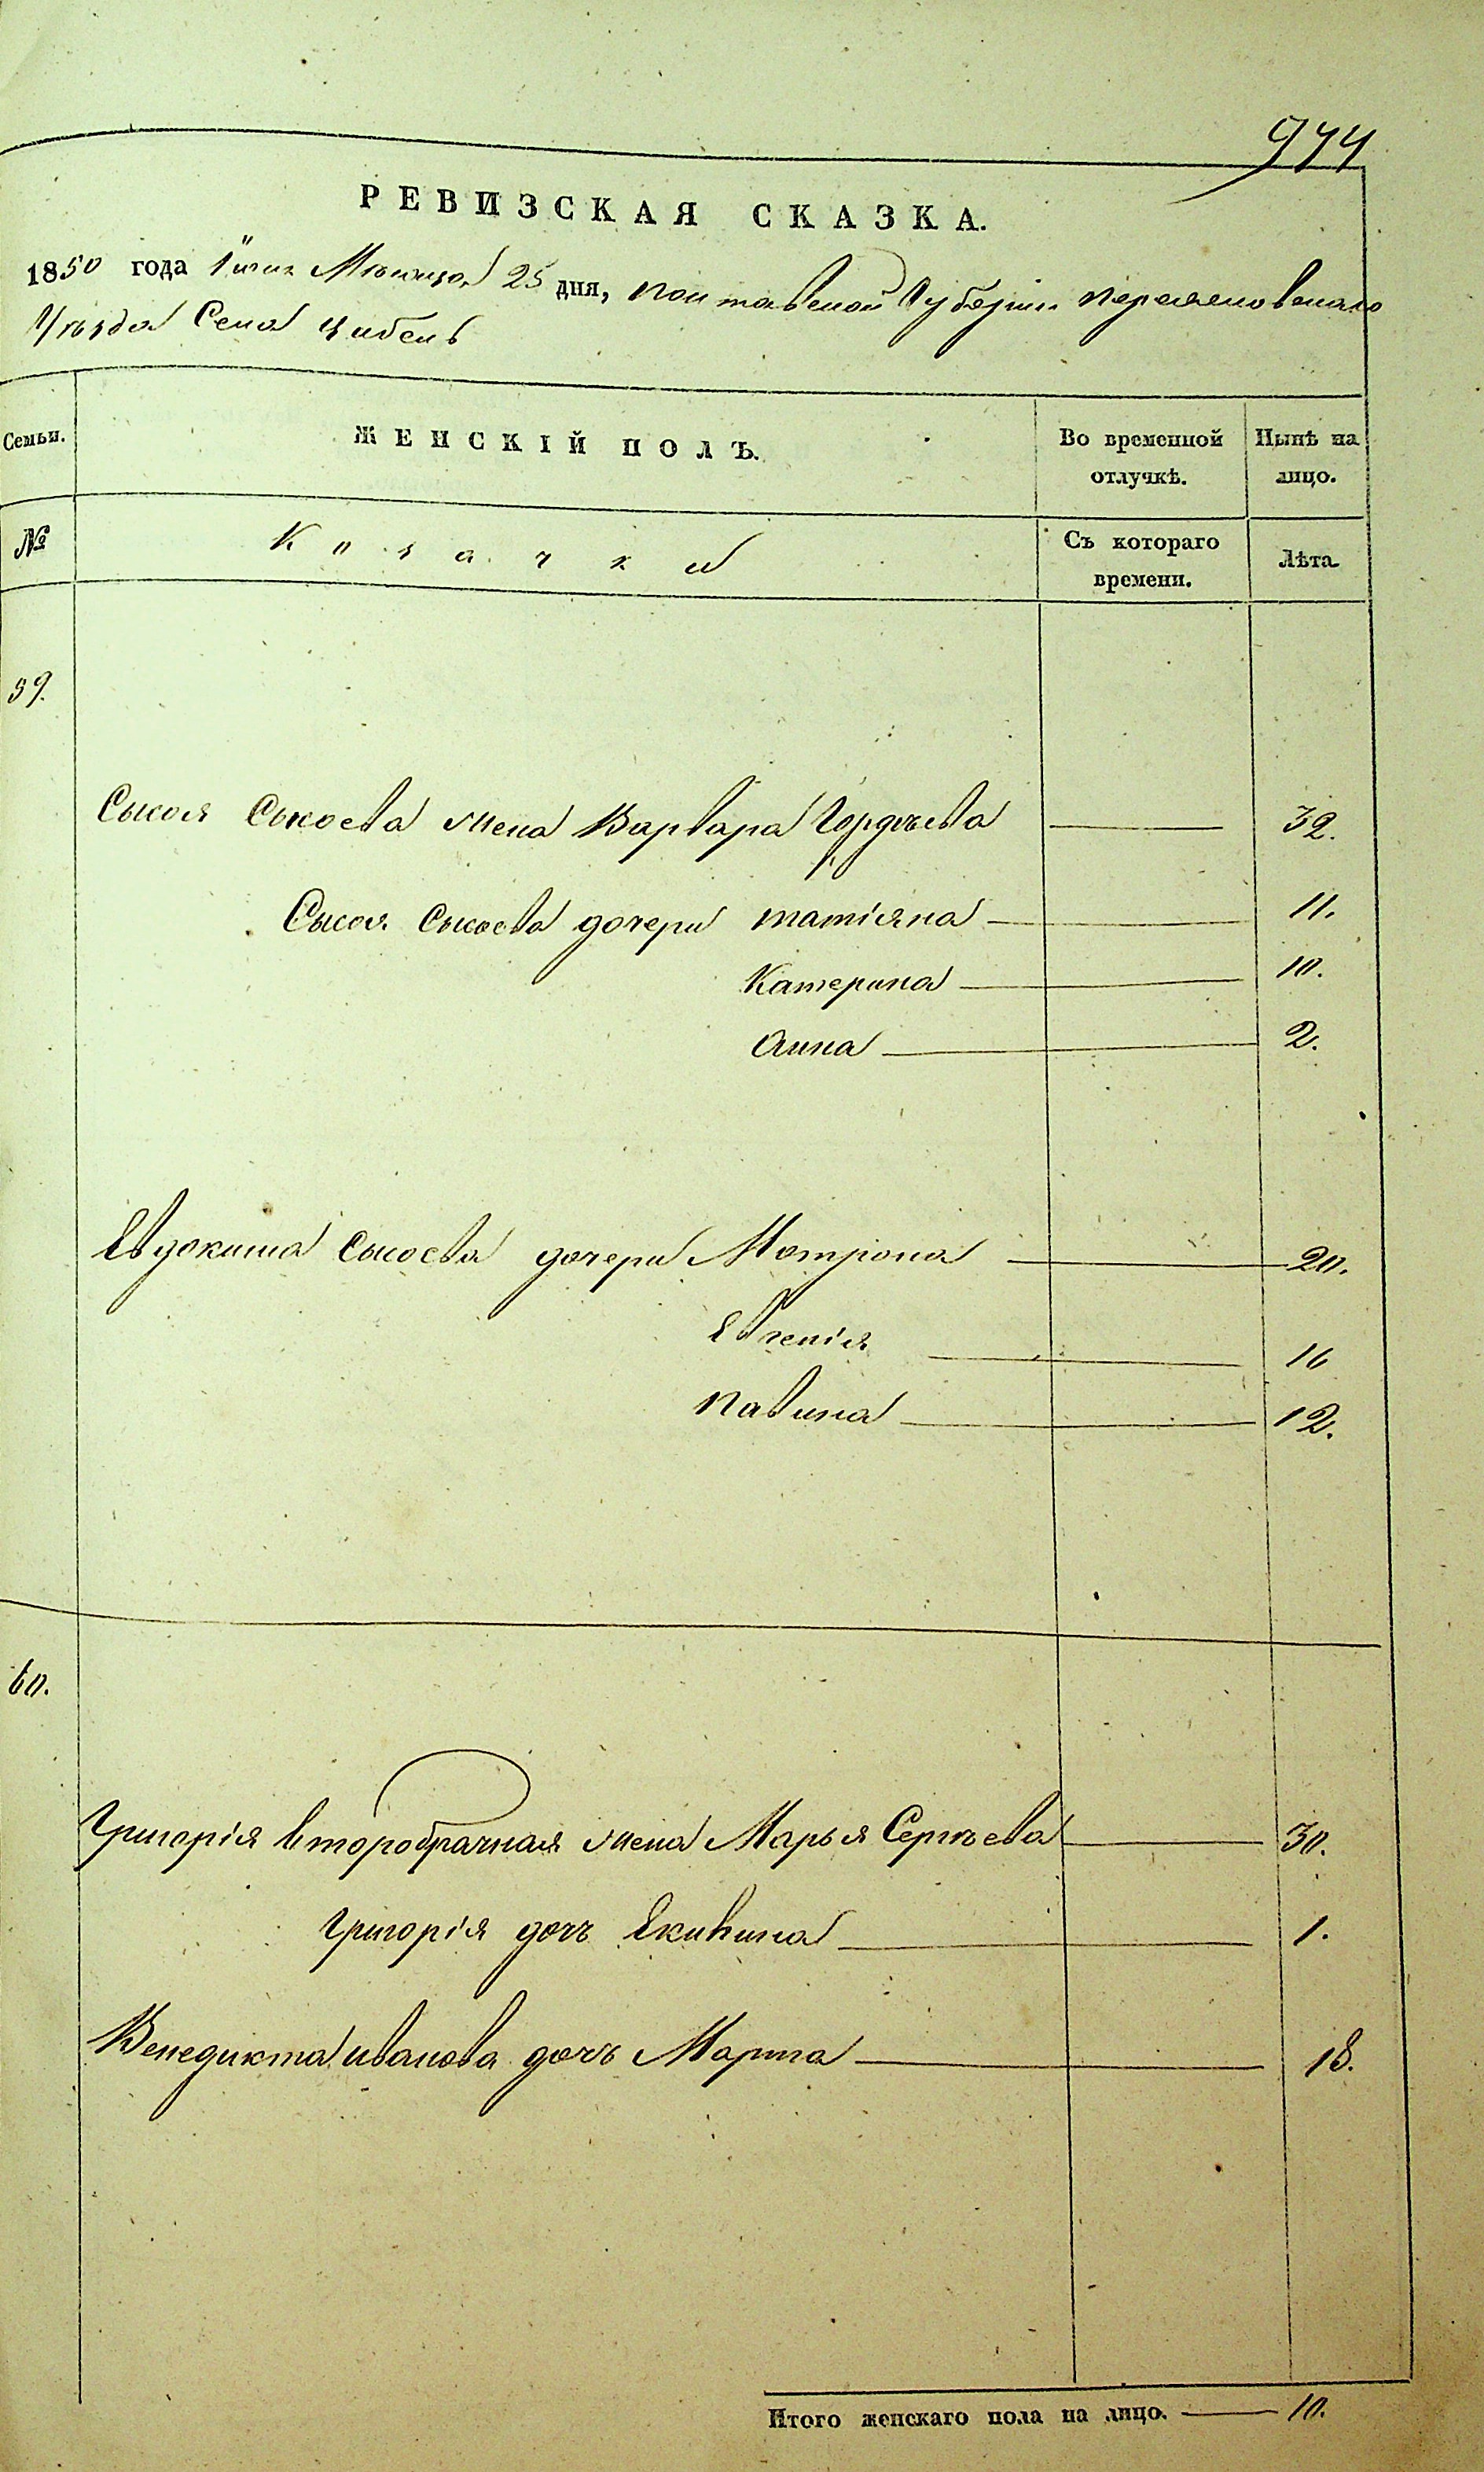 944
РЕВИЗСКАЯ СКАЗКА.
1850 года Іюня Мѣсяца 25 дня, Полтавской Губерніи Переяславскаго
Уѣзда Села Цибель
Семьи.
ЖЕНСКІЙ ПОЛЪ.
Во временной отлучкѣ.
Нынѣ на лицо.
№
Козачки
Съ котораго времени.
Лѣта.
59.
Сысоя Сысоева жена Варвара Гордѣева 32.
Сысоя Сысоева дочери Татіяна 11.
Катерина 10.
Анна 2.
Евдокима Сысоева дочери Мотрона 20.
Евгенія 16
Павлина 12.
60.
Григорія второбрачная жена Марья Сергѣева 30.
Григорія дочь 1.
Венедикта Иванова дочь Марта 18.
Итого женскаго пола на лицо. 10.